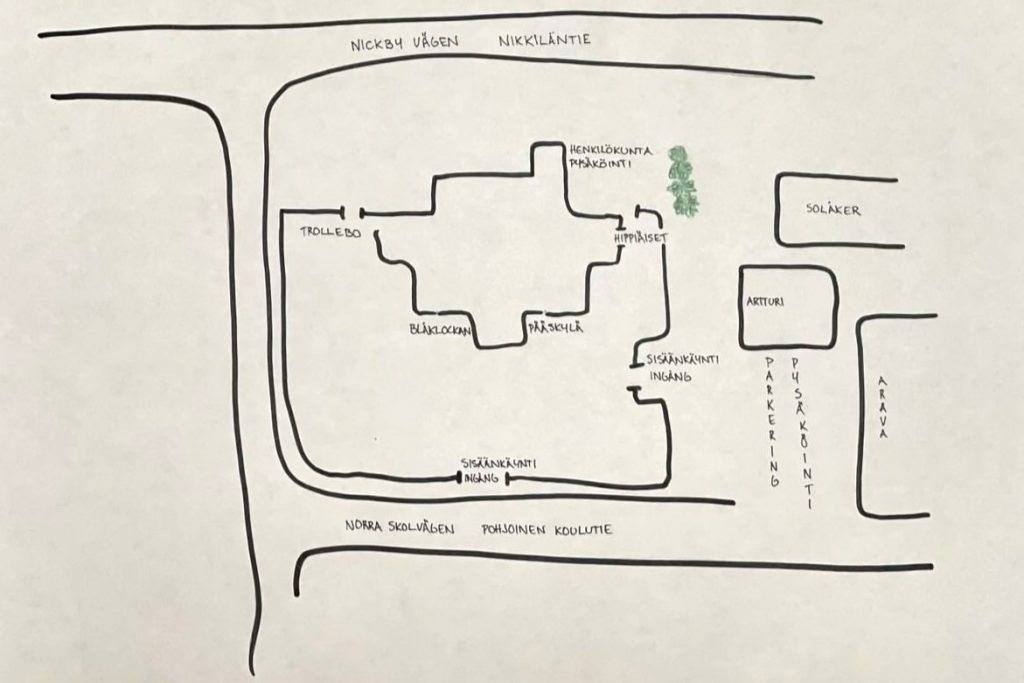 NICKBY VÄGEN NIKKILÄNTIE
HENKILÖKUNTA
PYSÄKÖINTI
SOLÅKER
TROLLEBO
HIPPIÄISET
ARTTURI
BLÅKLOCKAN
PÄÄSKYLÄ
SISÄÄNKÄYNTI
INGÅNG
PARKERING
PYSÄKÖINTI
ARAVA
SISÄÄNKÄYNTI
INGÅNG
NORRA SKOLVÄGEN POHJOINEN KOULUTIE